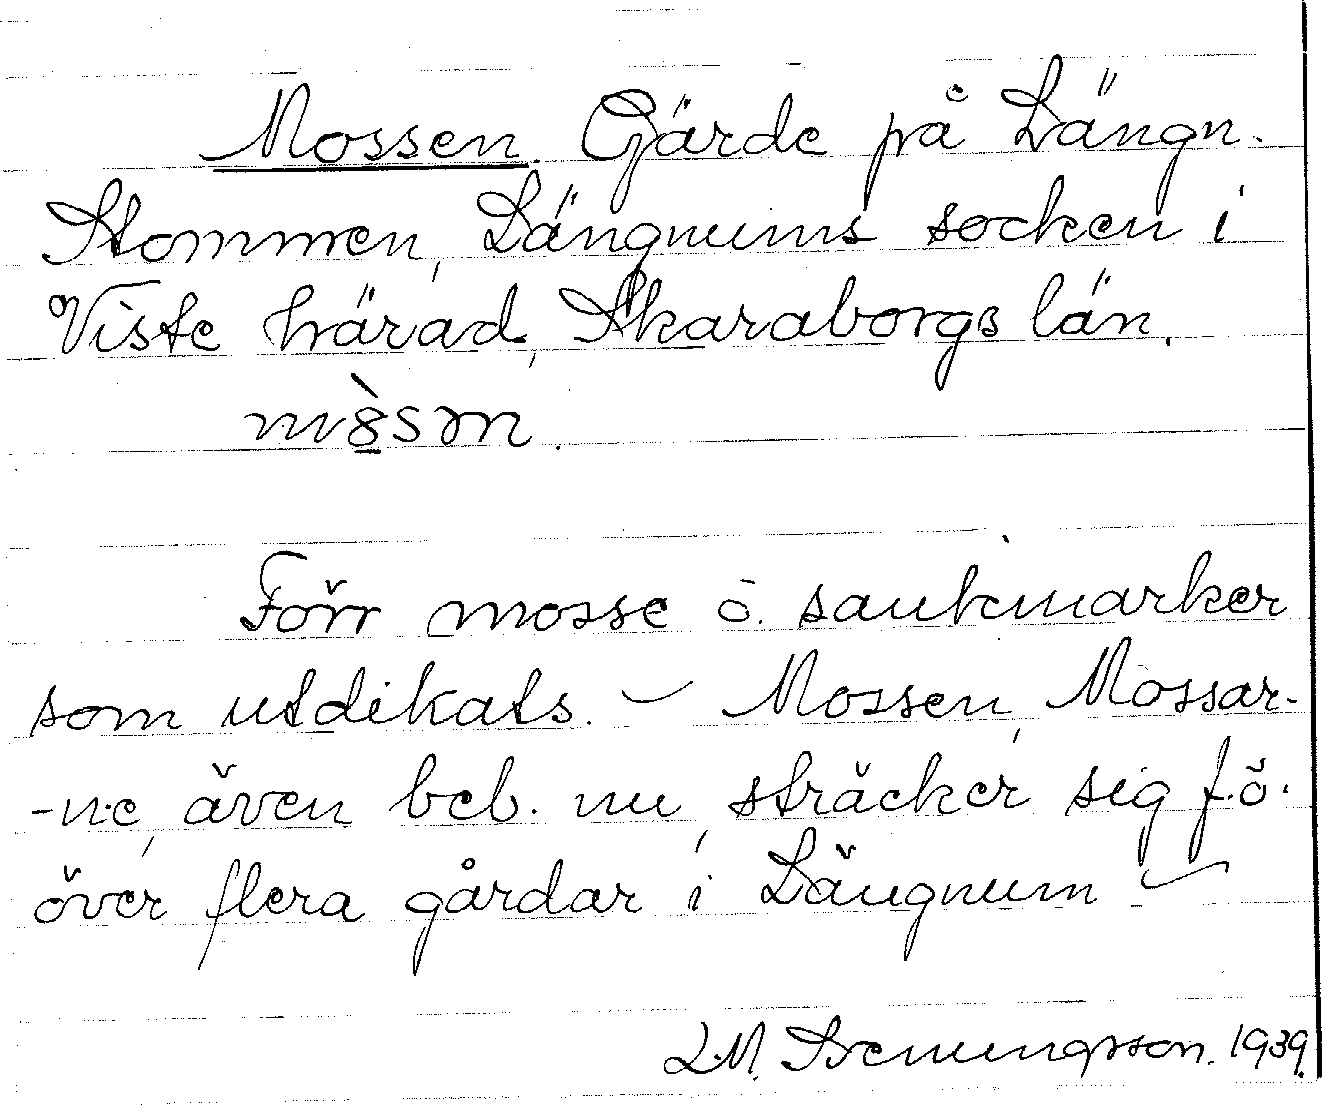 Mossen. Gärde på Längn.
Stommen, Längnums socken i
Viste härad, Skaraborgs län.
Förr mosse o. sankmarker
som utdikats. – Mossen, Mossar-
-ne, även beb. nu, sträcker sig f.ö.
över flera gårdar i Längnum –
L.M. Svenungsson. 1939.